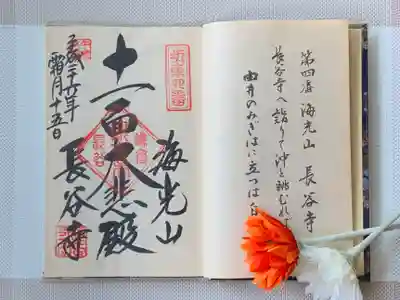 第四番 海光山 長谷寺
長谷寺へ詣りて沖を眺むれば
由井のみぎはに立つは白
海光山
十一面大悲殿
長谷寺
平成二十六年
霜月十五日